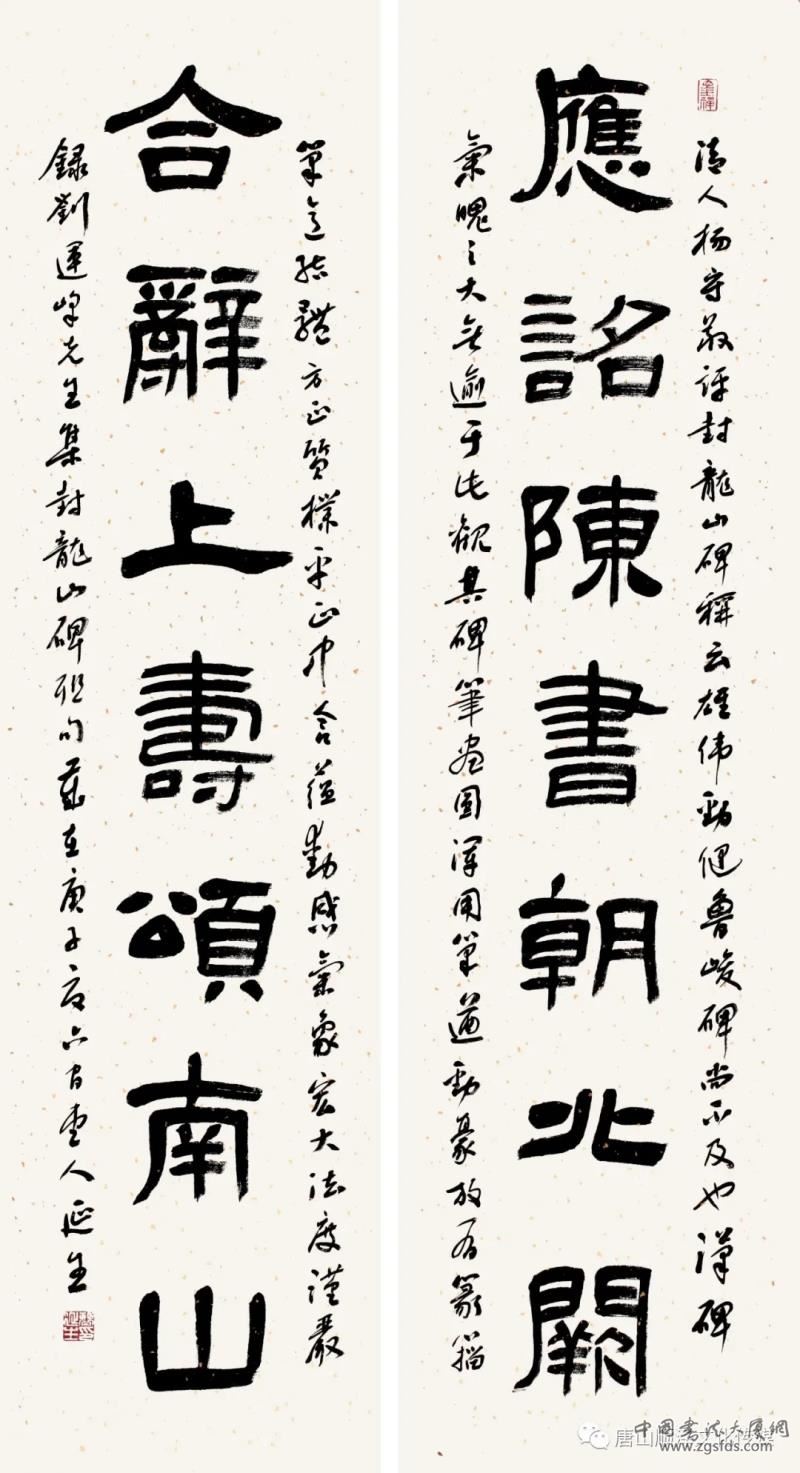 清人杨守敬评封龍山碑稱云雄伟勁健魯峻碑尚不及也漢碑
應詔陳書朝北闕
氣魄之大無逾于此觀其碑筆画圆渾用筆遒勁豪放有篆籀
筆意結體方正質樸平正中含蕴動感氣象宏大法度謹嚴
合辭上壽頌南山
錄劉運峰先生集封龍山碑联句歲在庚子夏六人延生
唐山
中国書法大厦網
www.zgsfds.com